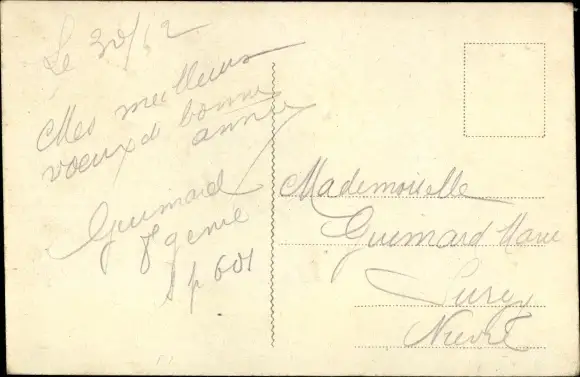 Le 30/12
Mes meilleurs
voeux de bonne
année
Guimard
8 genie
sp 601
Mademoiselle
Guimard Marie
Surgy
Nièvre